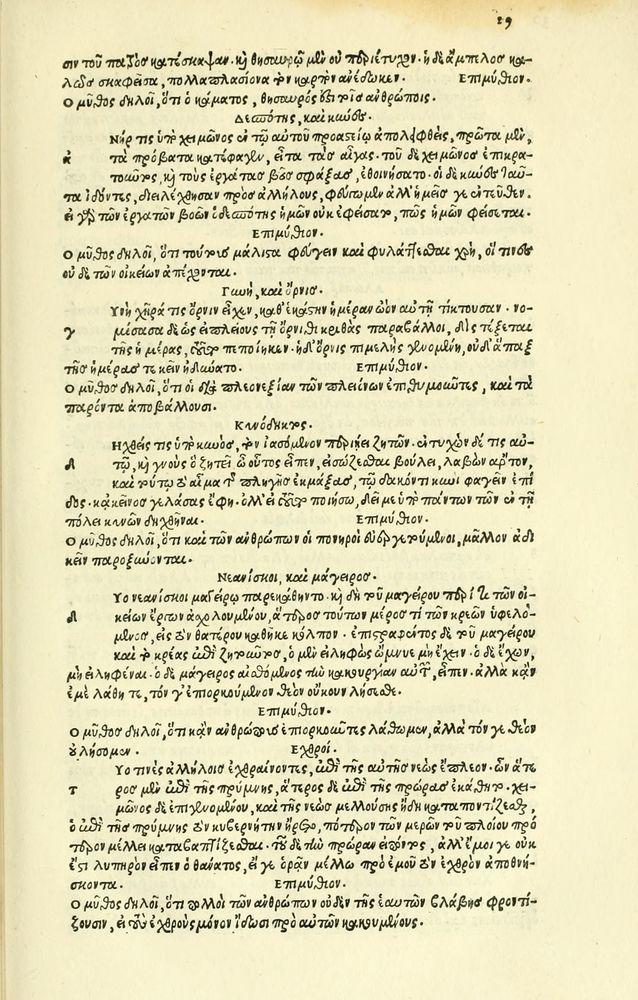 29
σιν τοῦ πατρὸς κατέσκαψαν. καὶ θησαυρῷ μὲν οὐ περιέτυχον. ἡ δὲ ἄμπελος κα-
λῶς σκαφεῖσα, πολλαπλασίονα τὸν καρπὸν ἀνέδωκεν. Επιμύθιον.
Ο μῦθος δηλοῖ, ὅτι ὁ κάματος, θησαυρός ἐστι τοῖς ἀνθρώποις.
Δεσπότης, καὶ κύνες.
Νήρ τις ὑπὸ χειμῶνος ἐν τῷ αὐτοῦ προαστείῳ ἀποληφθεὶς, πρῶτα μὲν,
α τὰ πρόβατα κατέφαγεν, εἶτα τὰς αἶγας. τοῦ δὲ χειμῶνος ἐπικρα-
τοῦντος, καὶ τοὺς ἐργάτας βοῦς σφάξας, ἐθοινήσατο. οἱ δὲ κύνες ταῦ-
τα ἰδόντες, διελέχθησαν πρὸς ἀλλήλους, φεύγωμεν ἀλλ' ἡμεῖς γε ἐντεῦθεν.
εἰ γὰρ τῶν ἐργατῶν βοῶν ὁ δεσπότης ἡμῶν οὐκ ἐφείσατο, πῶς ἡμῶν φείσεται.
Επιμύθιον.
Ο μῦθος δηλοῖ, ὅτι τούτους μάλιστα φεύγειν καὶ φυλάττεσθαι χρὴ, οἵ τινες
οὐδὲ τῶν οἰκείων ἀπέχονται.
Γυνὴ, καὶ ὄρνις.
Υνὴ χήρα τις ὄρνιν εἶχεν, καθ' ἑκάστην ἡμέραν ὠὸν αὐτῇ τίκτουσαν. νο-
γ μίσασα δὲ ὡς εἰ πλείους τῇ ὄρνιθι κριθὰς παραβάλλοι, δὶς τέξεται
τῆς ἡμέρας, τοῦτο πεποίηκεν. ἡ δ' ὄρνις πιμελὴς γενομένη, οὐδ' ἅπαξ
τῆς ἡμέρας τεκεῖν ἠδύνατο. Επιμύθιον.
Ο μῦθος δηλοῖ, ὅτι οἱ διὰ πλεονεξίαν τῶν πλειόνων ἐπιθυμοῦντες, καὶ τὰ
παρόντα ἀποβάλλουσι.
Κυνόδηκτος.
Ηχθείς τις ὑπὸ κυνὸς, τὸν ἰασόμενον περιῄει ζητῶν. ἐντυχὼν δέ τις αὐ-
Δ τῷ, καὶ γνοὺς ὃ ζητεῖ ὦ οὗτος εἶπεν, εἰ σώζεσθαι βούλει, λαβὼν ἄρτον,
καὶ τούτῳ τὸ αἷμα τῆς πληγῆς ἐκμάξας, τῷ δακόντι κυνὶ φαγεῖν ἐπί
δος. κἀκεῖνος γελάσας ἔφη. ἀλλ' εἰ τοῦτο ποιήσω, δεῖ με ὑπὸ πάντων τῶν ἐν τῇ
πόλει κυνῶν δηχθῆναι. Επιμύθιον.
Ο μῦθος δηλοῖ, ὅτι καὶ τῶν ἀνθρώπων οἱ πονηροὶ εὐεργετούμενοι, μᾶλλον ἀδι
κεῖν παροξύνονται.
Νεανίσκοι, καὶ μάγειρος.
Υο νεανίσκοι μαγείρῳ παρεκάθηντο. καὶ δὴ τοῦ μαγείρου περί τι τῶν οἰ-
Δ κείων ἔργων ἀσχολουμένου, ἅτερος τούτων μέρος τὶ τῶν κρεῶν ὑφελό-
μενος, εἰς τὸν θατέρου καθῆκε κόλπον. ἐπιστραφέντος δὲ τοῦ μαγείρου
καὶ τὸ κρέας ἐπιζητοῦντος, ὁ μὲν εἰληφὼς ὤμνυε μὴ ἔχειν. ὁ δὲ ἔχων,
μὴ εἰληφέναι. ὁ δὲ μάγειρος αἰσθόμενος τὴν κακουργίαν αὐτῶν, εἶπεν. ἀλλὰ κἂν
ἐμὲ λάθητε, τόν γ' ἐπιορκούμενον θεὸν οὔκουν λήσετε.
Επιμύθιον.
Ο μῦθος δηλοῖ, ὅτι κἂν ἀνθρώπους ἐπιορκοῦντες λάθωμεν, ἀλλὰ τόν γε θεὸν
οὐ λήσομεν. Εχθροί.
Υο τινὲς ἀλλήλοις ἐχθραίνοντες, ἐπὶ τῆς αὐτῆς νεὼς ἔπλεον. ὧν ἅτε
τ ρος μὲν ἐπὶ τῆς πρύμνης, ἅτερος δὲ ἐπὶ τῆς πρώρας ἐκάθητο. χει-
μῶνος δὲ ἐπιγενομένου, καὶ τῆς νεὼς μελλούσης ἤδη καταποντίζεσθαι,
ὁ ἐπὶ τῆς πρύμνης τὸν κυβερνήτην ἤρετο, πότερον τῶν μερῶν τοῦ πλοίου πρό
τερον μέλλει καταβαπτίζεσθαι. τοῦ δὲ τὴν πρώραν εἰπόντος, ἀλλ' ἔμοιγε οὐκ
ἔστι λυπηρὸν εἶπεν ὁ θάνατος, εἴ γε ὁρᾶν μέλλω πρὸ ἐμοῦ τὸν ἐχθρὸν ἀποθνή-
σκοντα. Επιμύθιον.
Ο μῦθος δηλοῖ, ὅτι πολλοὶ τῶν ἀνθρώπων οὐδὲν τῆς ἑαυτῶν βλάβης φροντί-
ζουσιν, εἰ τοὺς ἐχθροὺς μόνον ἴδωσι πρὸ αὐτῶν κακουμένους.